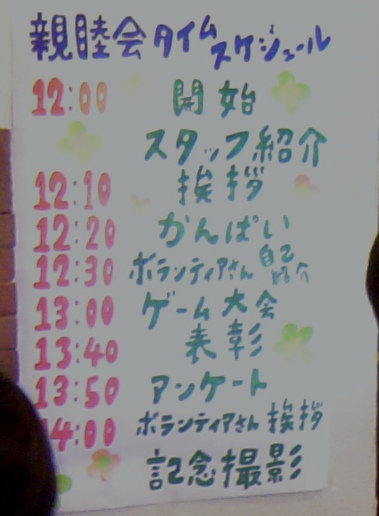 親睦会タイムスケジュール
12:00 開始
スタッフ紹介
12:10 挨拶
12:20 かんぱい
12:30 ボランティアさん自己紹介
13:00 ゲーム大会
13:40 表彰
13:50 アンケート
14:00 ボランティアさん挨拶
記念撮影